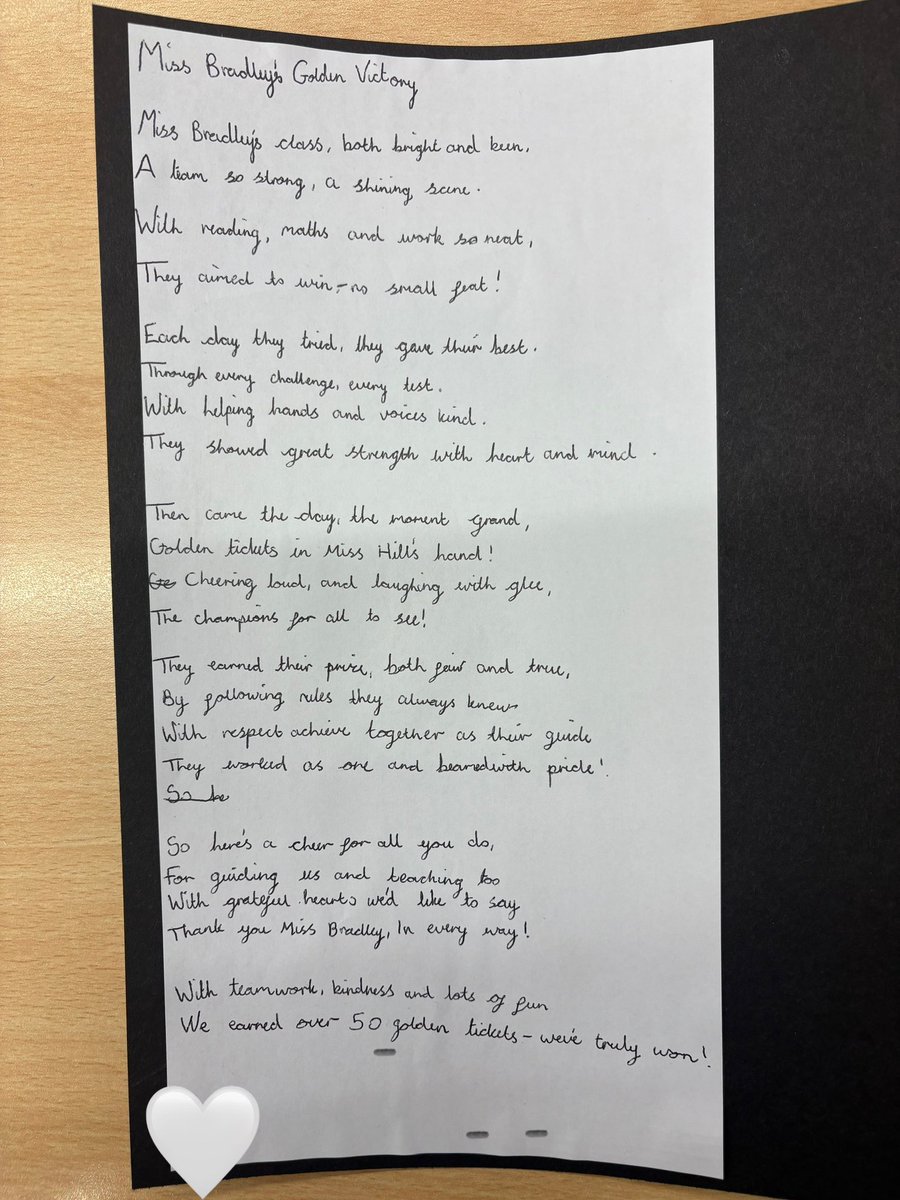 Miss Bradley's Golden Victory
Miss Bradley's class, both bright and keen,
A team so strong, a shining scene.
With reading, maths and work so neat,
They aimed to win,-no small feat!
Each day they tried, they gave their best.
Through every challenge, every test.
With helping hands and voices kind.
They showed great strength with heart and mind.
Then came the day, the moment grand,
Golden tickets in Miss Hill's hand!
Cheering loud, and laughing with glee,
The champions for all to see!
They earned their prize, both fair and true,
By following rules they always knew
With respect achieve together as their guide
They worked as one and beamed with pride!
So here's a cheer for all you do,
For guiding us and teaching too
With grateful hearts we'd like to say
Thank you Miss Bradley, In every way!
With teamwork, kindness and lots of fun
We earned over 50 golden tickets - we've truly won!